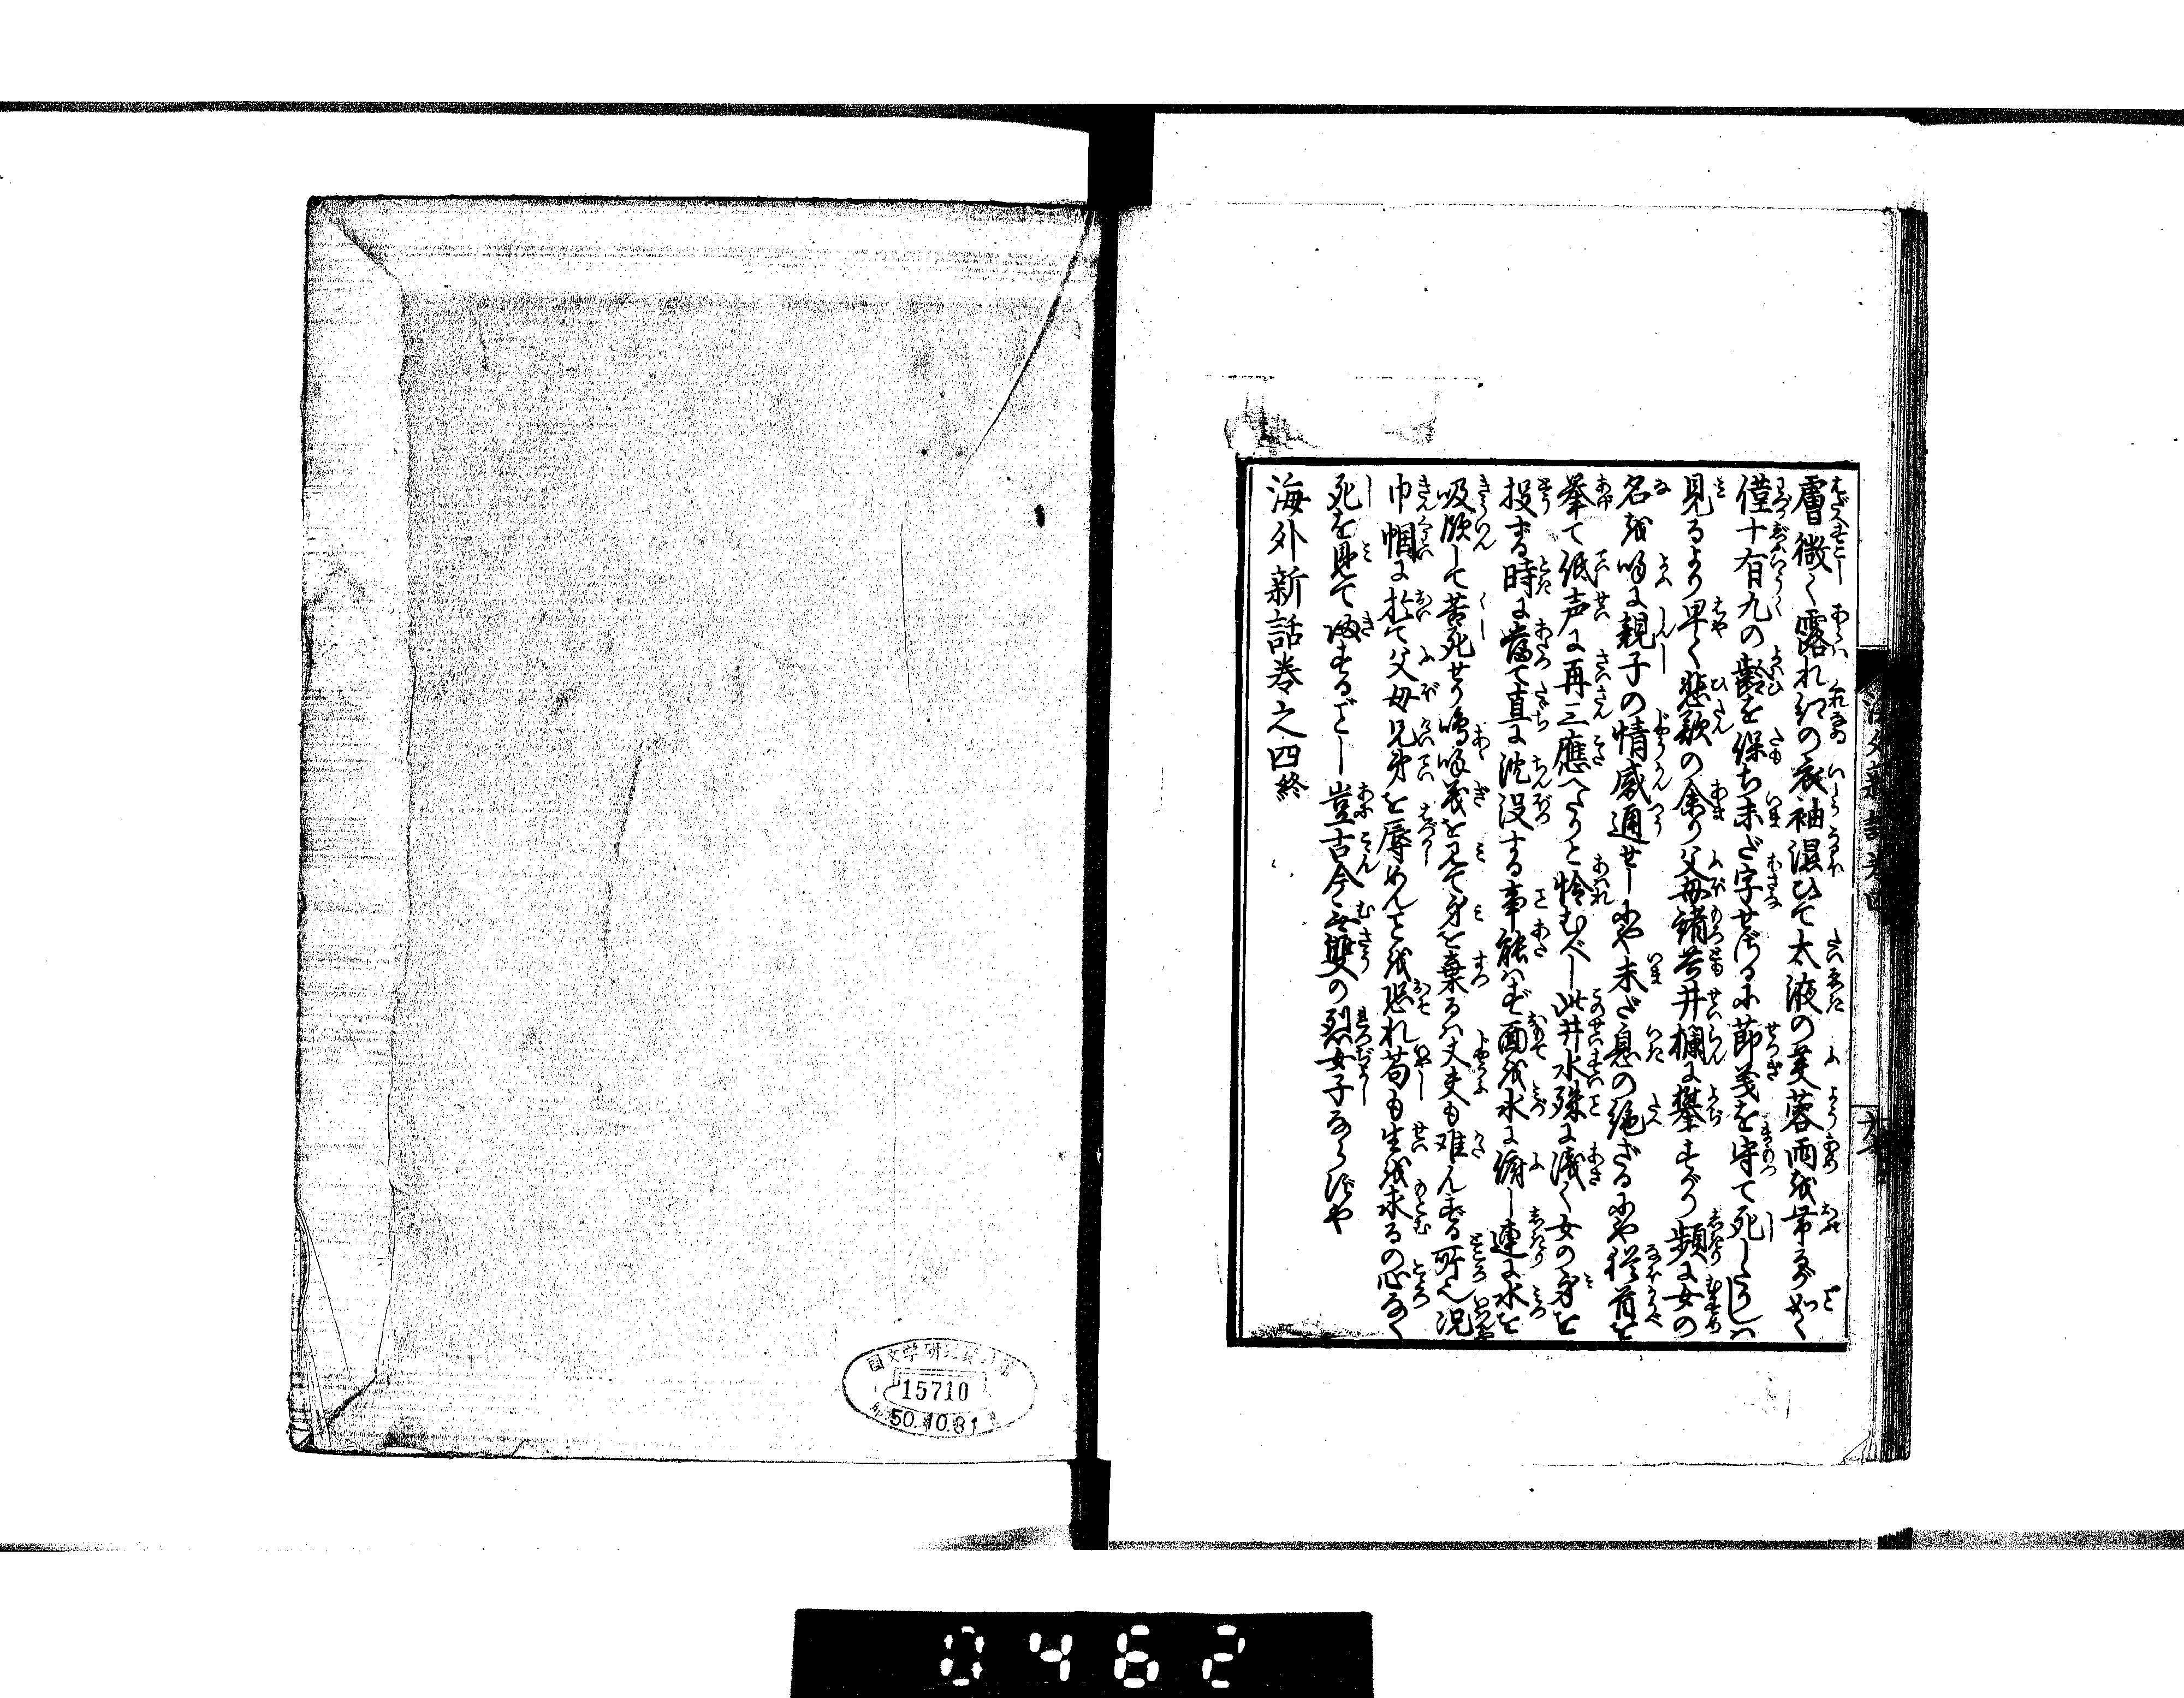 膚微く露れ紅の衣袖濕ひて太液の芙蓉雨を帯るが如く
僅十有九の齢を保ち未だ字せざるに節義を守て死したりしハ
見るより早く悲歎の余り父母諸共井欄に攀すがり頻に女の
名を呼に親子の情感通せしにや未だ息の絶ざるにや猶首を
挙て低声に再三應へたりと怜むべし此井水殊に浅く女の身を
投ずる時に當て直に沈没する事能ハず面を水に俯し連に水を
吸飲して苦死せり嗚呼義を見て身を棄るハ丈夫も難んずる所也況
巾幗に於て父母兄弟を辱めんと恐れ苟も生を求るの心なく
死を見て帰するごとし豈古今無雙の烈女子ならずや
海外新話巻之四終
海外新話巻四
15710
50.10.31
0462